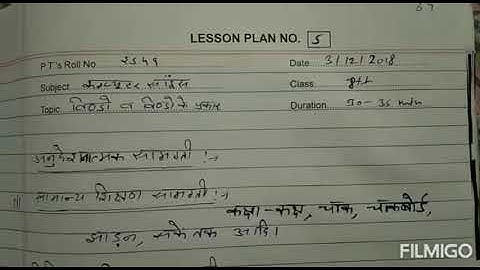 67
LESSON PLAN NO. 5
PT's Roll No 2549 Date 3/12/2018
Subject कम्प्यूटर साइंस Class 8th
Topic विण्डो व विण्डो के प्रकार Duration 30-35 min
अनुदेशनात्मक सामग्री :→
सामान्य शिक्षण सामग्री :→
कक्षा-कक्ष, चॉक, चॉकबोर्ड,
झाड़न, संकेतक आदि।
FILMIGO